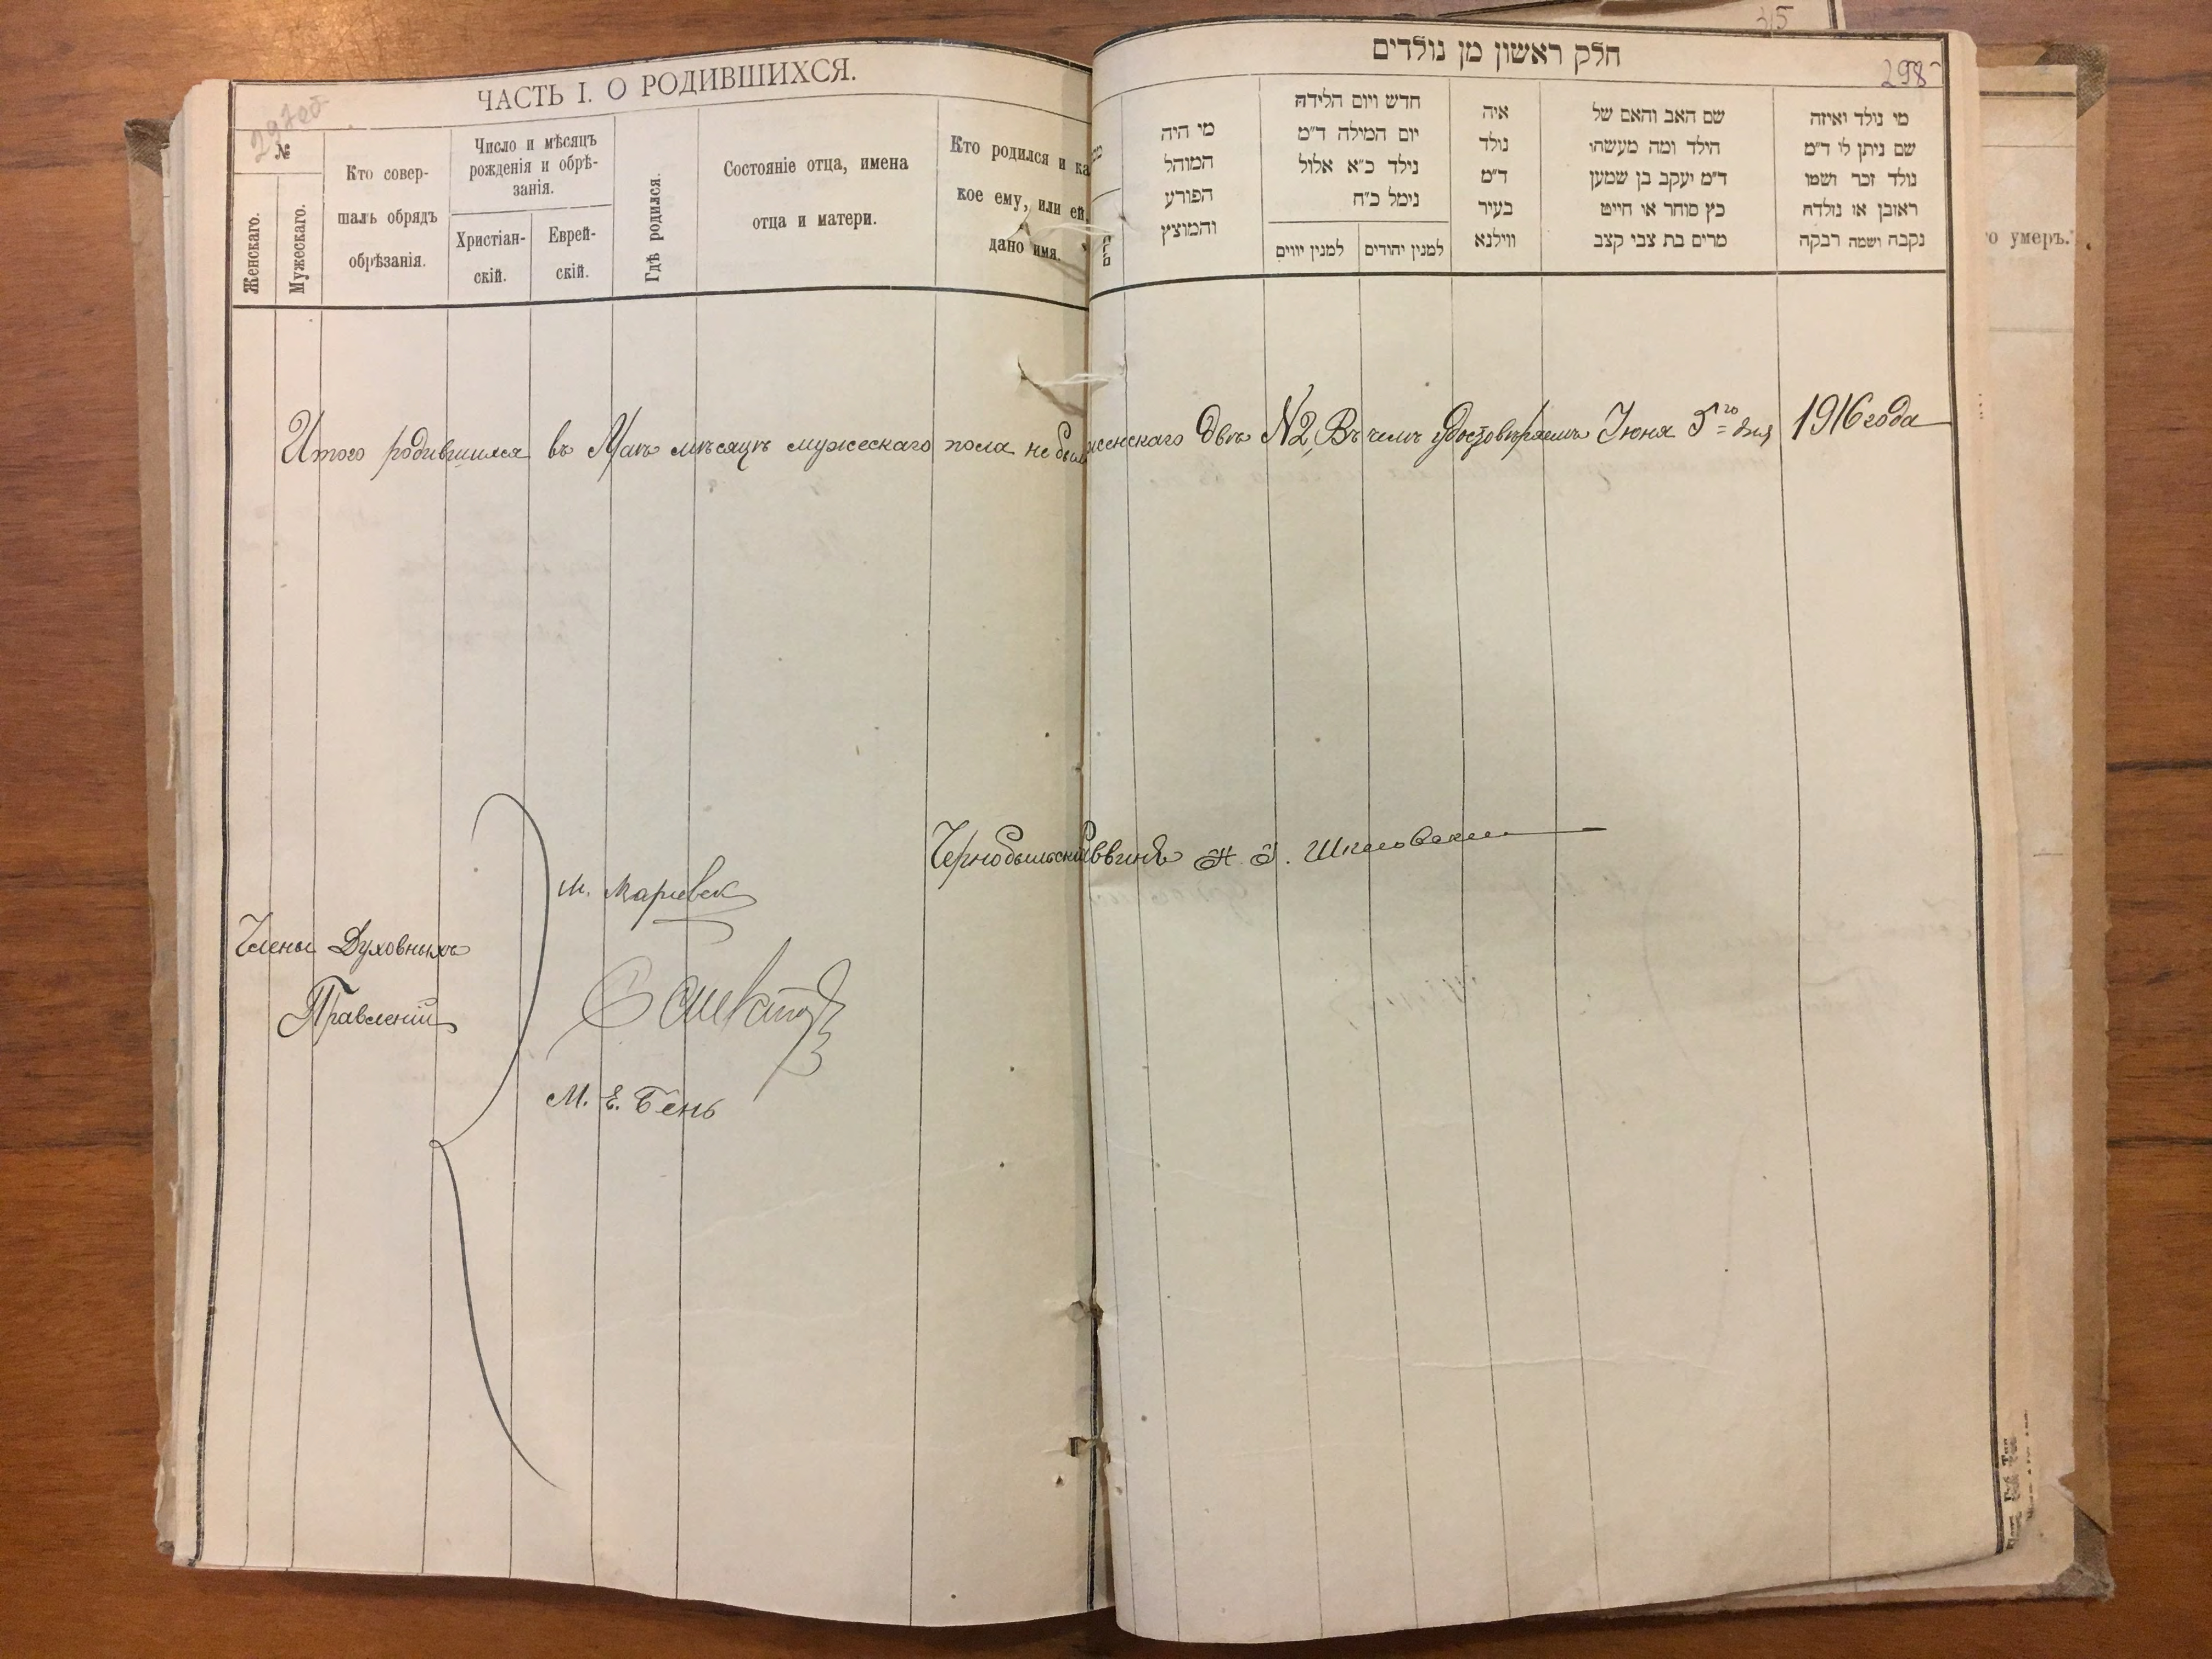 ЧАСТЬ I. О РОДИВШИХСЯ.
297об
№
Женскаго.
Мужескаго.
Кто совер-
шалъ обрядъ
обрѣзанія.
Число и мѣсяцъ
рожденія и обрѣ-
занія.
Христіан-
скій.
Еврей-
скій.
Гдѣ родился.
Состояніе отца, имена
отца и матери.
Кто родился и ка
кое ему, или ей,
дано имя.
חלק ראשון מן נולדים
298
315
מי נולד ואיזה
שם ניתן לו ד"מ
נולד זכר ושמו
ראובן או נולדה
נקבה ושמה רבקה
שם האב והאם של
הילד ומה מעשהו
ד"מ יעקב בן שמעון
כץ סוחר או חייט
מרים בת צבי קצב
איה
נולד
ד"מ
בעיר
ווילנא
חדש ויום הלידה
יום המילה ד"מ
נילד כ"א אלול
נימל כ"ח
למנין יהודים
למנין יוונים
מי היה
המוהל
הפורע
והמוצץ
о умеръ.
Итого родившихся въ Маѣ мѣсяцѣ мужескаго пола не было женскаго двѣ №2, Въ чемъ удостовѣряемъ Іюня 5го дня 1916 года
Чернобыльскій Раввинъ Шкловскій
Члены Духовныхъ
Правленій
М.
М. Е. Бень